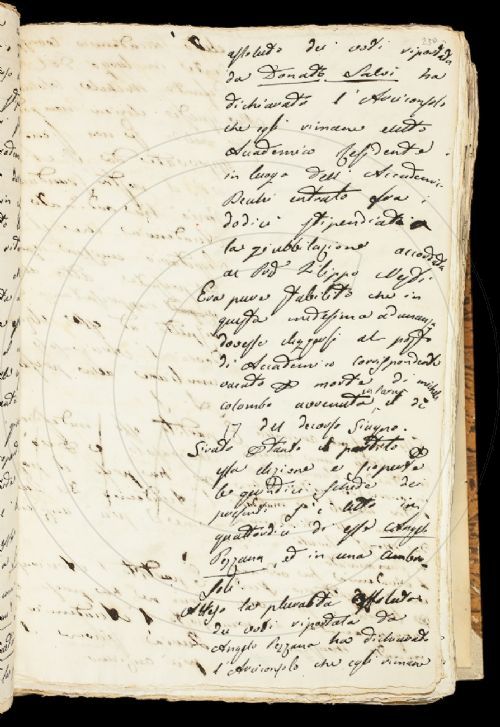 assoluto dei voti riportata
da Donato Salvi ha
dichiarato l'Arciconsolo
che egli rimane eletto
Accademico Residente
in luogo dell'Accademi-
Bechi entrato fra i
dodici stipendiati
la giubbilazione accordata
al Filippo
Era pure stabilito che in
questa medesima adunanza
dovesse eleggersi al posto
di Accademico corrispondente
vacato morte di Michele
colombo avvenuta in Parma il dì
17 del decorso Giugno.
Girato il partito
essa elezione e
le quindici schede dei
presenti si è letto in
quattordici di esse Angelo
Pezzana, ed in una Ambro-
soli.
Atteso la pluralità assoluta
dei voti riportata da
Angelo Pezzana ha dichiarato
l'Arciconsolo che egli rimane